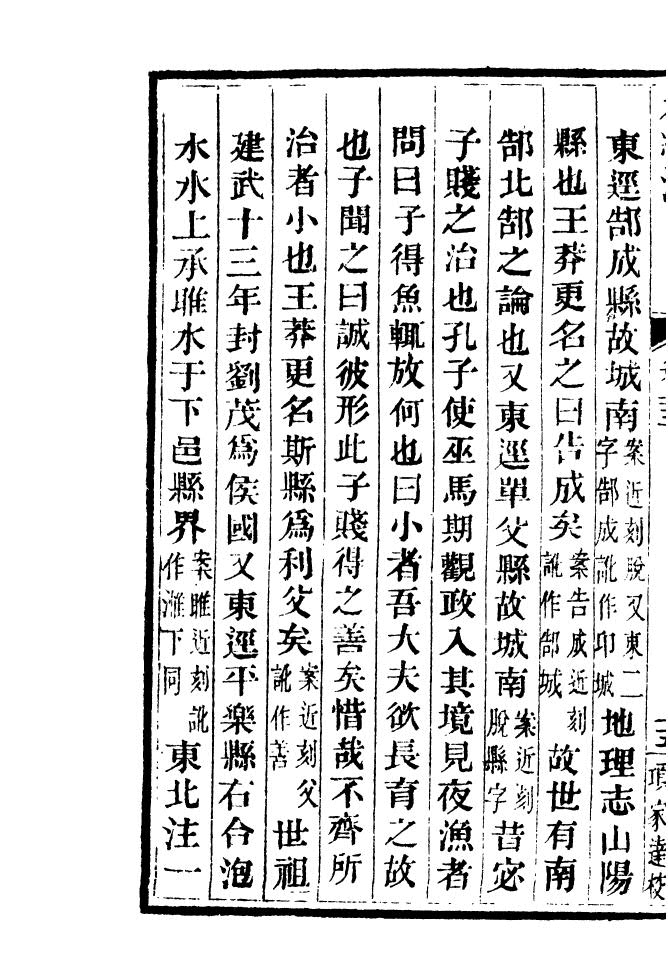 東逕郜成縣故城南案近刻脫又東二字郜成訛作卬城地理志山陽
縣也王莽更名之曰告成矣案告成近刻訛作郜城故世有南
郜北郜之論也又東逕單父縣故城南案近刻脫縣字昔宓
子賤之治也孔子使巫馬期觀政入其境見夜漁者
問曰子得魚輒放何也曰小者吾大夫欲長育之故
也子聞之曰誠彼形此子賤得之善矣惜哉不齊所
治者小也王莽更名斯縣爲利父矣案近刻父訛作善世祖
建武十三年封劉茂爲侯國又東逕平樂縣右合泡
水水上承睢水于下邑縣界案睢近刻訛作濉下同東北注一